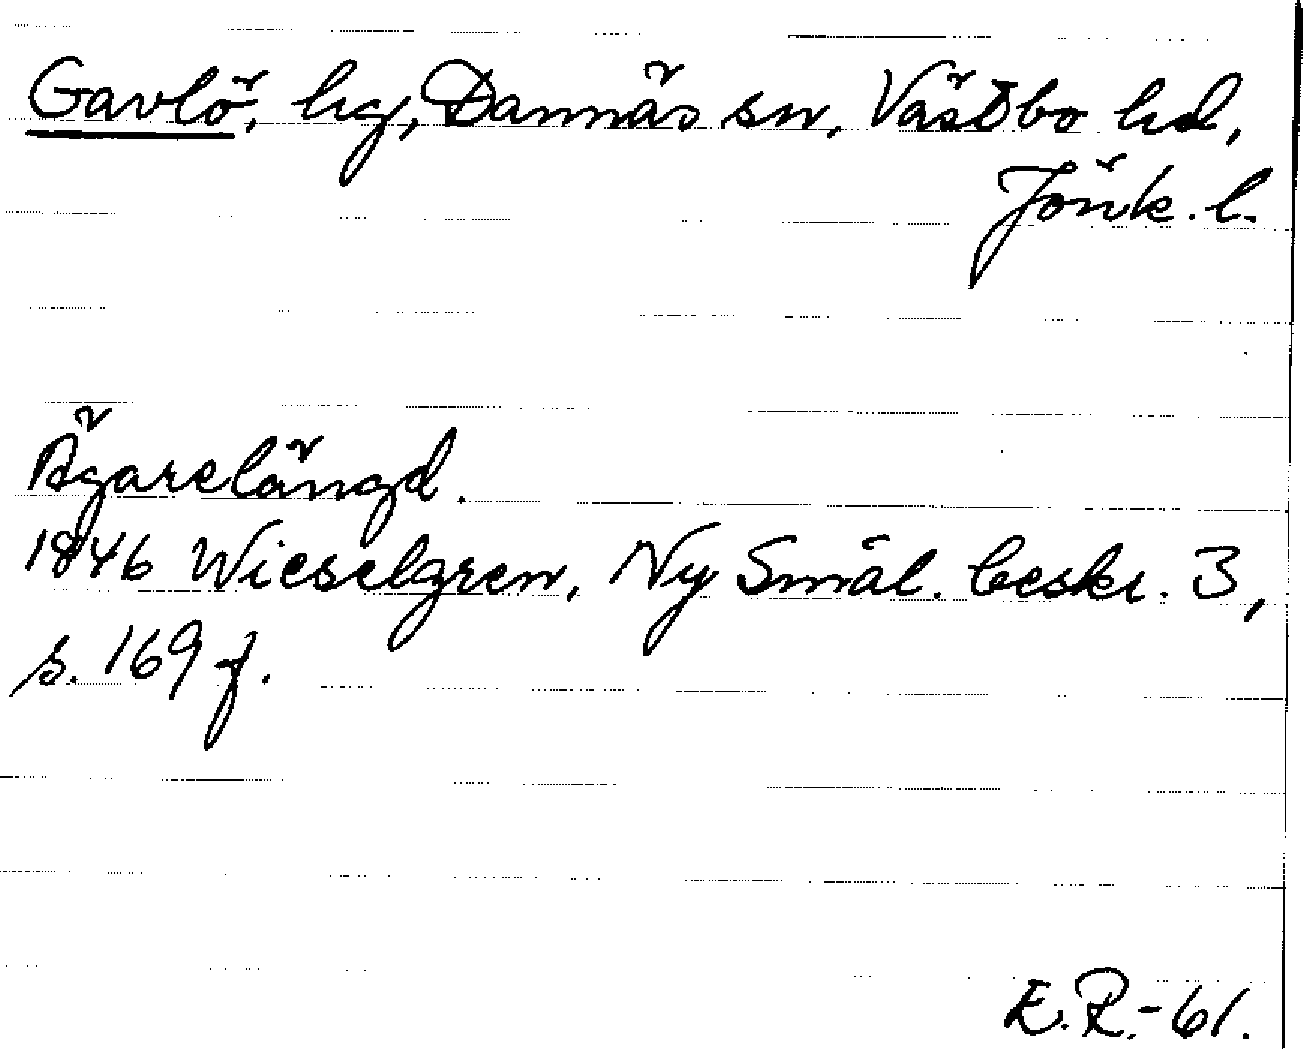 Gavlö, hg, Dannäs sn, Västbo hd,
Jönk. l.
Ägarelängd.
1846 Wieselgren, Ny Smål. beskr. 3,
s. 169 f.
E.R.-61.